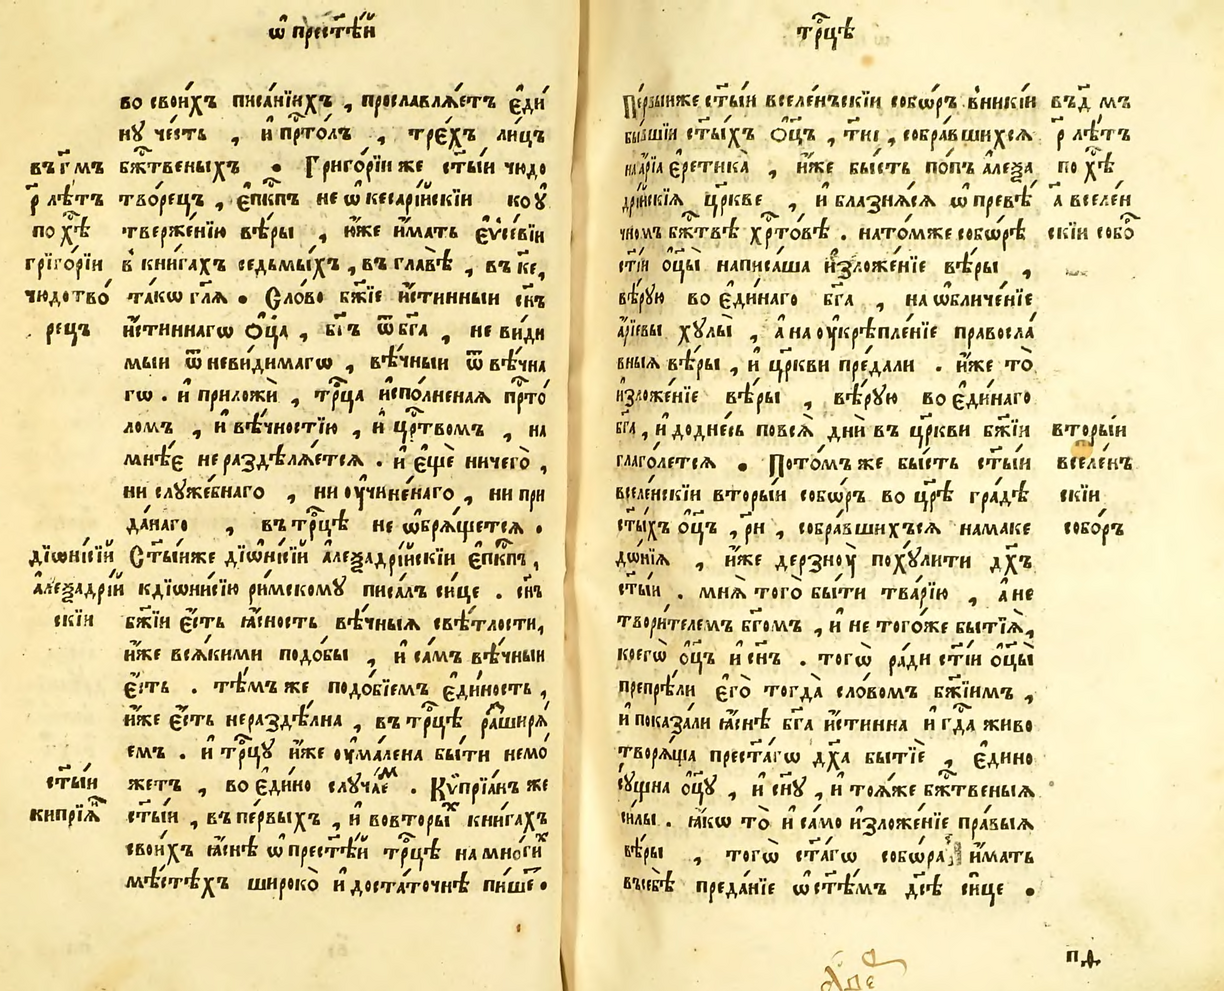 ѡ҆ прест҃ѣ́й
во свои́хъ писа́нїихъ , прославлѧ́етъ є҆ди́
нꙋ че́сть , и҆ прⷭ҇то́лъ , трє́хъ лицъ
бжⷭ҇твеныхъ • Григо́рїи же ст҃ы́и чюдо
творецъ , є҆пⷭ҇кпъ не ѡ҆кесарі́йскїи коу
твержені́ю вѣ́ры , и҆́же и҆́мать є҆ѵсе́вїи
в҆ кни́гахъ седьмы́хъ , въ главѣ̀ , въ к҃е ,
та́кѡ гл҃ѧ • Сло́во бж҃їе и҆́стинныи сн҃ъ
и҆́стиннагѡ ѻ҆ц҃а̀ , бг҃ъ ѿ бг҃а , не ви́ди
мыи ѿ неви́димагѡ , вѣ́чныи ѿ вѣ́чна
гѡ . и҆ приложѝ , трⷪ҇ца и҆спо́лненаѧ прⷭ҇то́
ломъ , и҆ вѣ́чностїю , и҆ црⷭ҇твомъ , на
мнѣ́є не раздѣлѧ́етсѧ . и҆ є҆щѐ ничего̀ ,
ни слꙋже́бнаго , ни оу҆чине́наго , ни при
да́наго , въ трⷪ҇цѣ не ѡ҆брѧ́щетсѧ •
Ст҃ы́иже дїѡни́сїй а҆леѯадрі́йскїи є҆пⷭ҇кпъ ,
кдїѡни́сїю ри́мскомꙋ писа́лъ си́це . сн҃ъ
бж҃їи є҆́сть ꙗ҆́сность вѣ́чныѧ свѣ́тлости ,
и҆́же всѧ́кими подо́бы , и҆ са́мъ вѣ́чныи
є҆́сть . тѣ́мъ же подо́бїемъ є҆ди́ность ,
и҆́же є҆́сть нераздѣ́лна , въ трⷪ҇цѣ ра́ширѧ́
емъ . и҆ трⷪ҇цꙋ и҆́же оу҆ма́лена бы́ти немо́
жетъ , во є҆ди́но слꙋча́еⷨ . Кѷпрїа́нъ же
ст҃ы́и , въ пе́рвыхъ , и҆ во вторы́ⷯ кни́гахъ
свои́хъ ꙗ҆́снѣ ѡ҆ прест҃ѣ́й трⷪ҇цѣ на мно́ги́ⷯ
мѣ́стѣхъ широко̀ и҆ доста́точнѣ пи́ше •
въ г҃ мъ
р҃ лѣ́тъ
по хⷭ҇ѣ
григо́рїи
чюдотво́
рецъ
дїѡни́сїй
а҆леѯадрі́й
скїи
ст҃ы́и
кипрїѧ́ⷩ
трⷪ҇цѣ
Пе́рвыиже ст҃ы́и вселе́ньскїи собо́ръ в҆никі́и
бы́вшїи ст҃ы́хъ ѻ҆ц҃ъ , тиі , собра́вшихсѧ
на а҆́рїа є҆ретика̀ , и҆́же бы́сть по́пъ а҆леѯа
дрі́йскїѧ цр҃кве , и҆ блазнѧ́сѧ ѡ҆ превѣ́
чномъ бжⷭ҇твѣ хрⷭ҇то́вѣ . на то́мже собо́рѣ
ст҃і́и ѻ҆ц҃ы̀ написа́ша и҆зложе́нїе вѣ́ры ,
вѣ́рꙋю во є҆ди́наго бг҃а , на ѡ҆бличе́нїе
а҆рїевы хꙋлы̀ , а҆ на оу҆крѣпле́нїе правосла́
вныѧ вѣ́ры , и҆ цр҃кви преда́ли . и҆́же то̀
и҆зложе́нїе вѣ́ры , вѣ́рꙋю во є҆ди́наго
бг҃а , и҆ додне́сь повсѧ̀ днѝ въ цр҃кви бж҃їи
глаго́летсѧ • Пото́мъ же бы́сть ст҃ы́и
вселе́нскїи вторы́и собо́ръ во цр҃ѣ гра́дѣ
ст҃ы́хъ ѻ҆ц҃ъ , рн҃ , собра́вшихъсѧ намаке
до́нїѧ , и҆́же дерзноу̀ похꙋ́лити дх҃ъ
ст҃ы́и . мнѧ̀ того̀ бы́ти тва́рїю , а҆ не
твори́телемъ бг҃омъ , и҆ не тогоже бытїѧ̀ ,
коегѡ̀ ѻ҆ц҃ъ и҆ сн҃ъ . тогѡ̀ ра́ди ст҃і́и ѻ҆ц҃ы̀
препрѣ́ли є҆го̀ тогда̀ сло́вомъ бж҃їимъ ,
и҆ показа́ли ꙗ҆́снѣ бг҃а и҆́стинна и҆ гдⷭ҇а живо
творѧ́ща прест҃а́гѡ дх҃а бытїѐ , є҆ди́но
сꙋ́щна ѻ҆ц҃ꙋ̀ , и҆ сн҃ꙋ , и҆ тоѧ́же бжⷭ҇твеныѧ
си́лы . ꙗ҆́кѡ то̀ и҆ само̀ и҆зложе́нїе пра́выѧ
вѣ́ры , тогѡ̀ ст҃а́гѡ собо́ра и҆́мать
въсебѣ̀ преда́нїе ѡ҆ ст҃ѣ́мъ дс҃ѣ си́це •
въ д҃ мъ
р҃ лѣ́тъ
по хⷭ҇ѣ
а҃ вселе́н
скїи собоⷬ҇
вторы́и
вселе́нъ
скїи
собо́ръ
п҃д